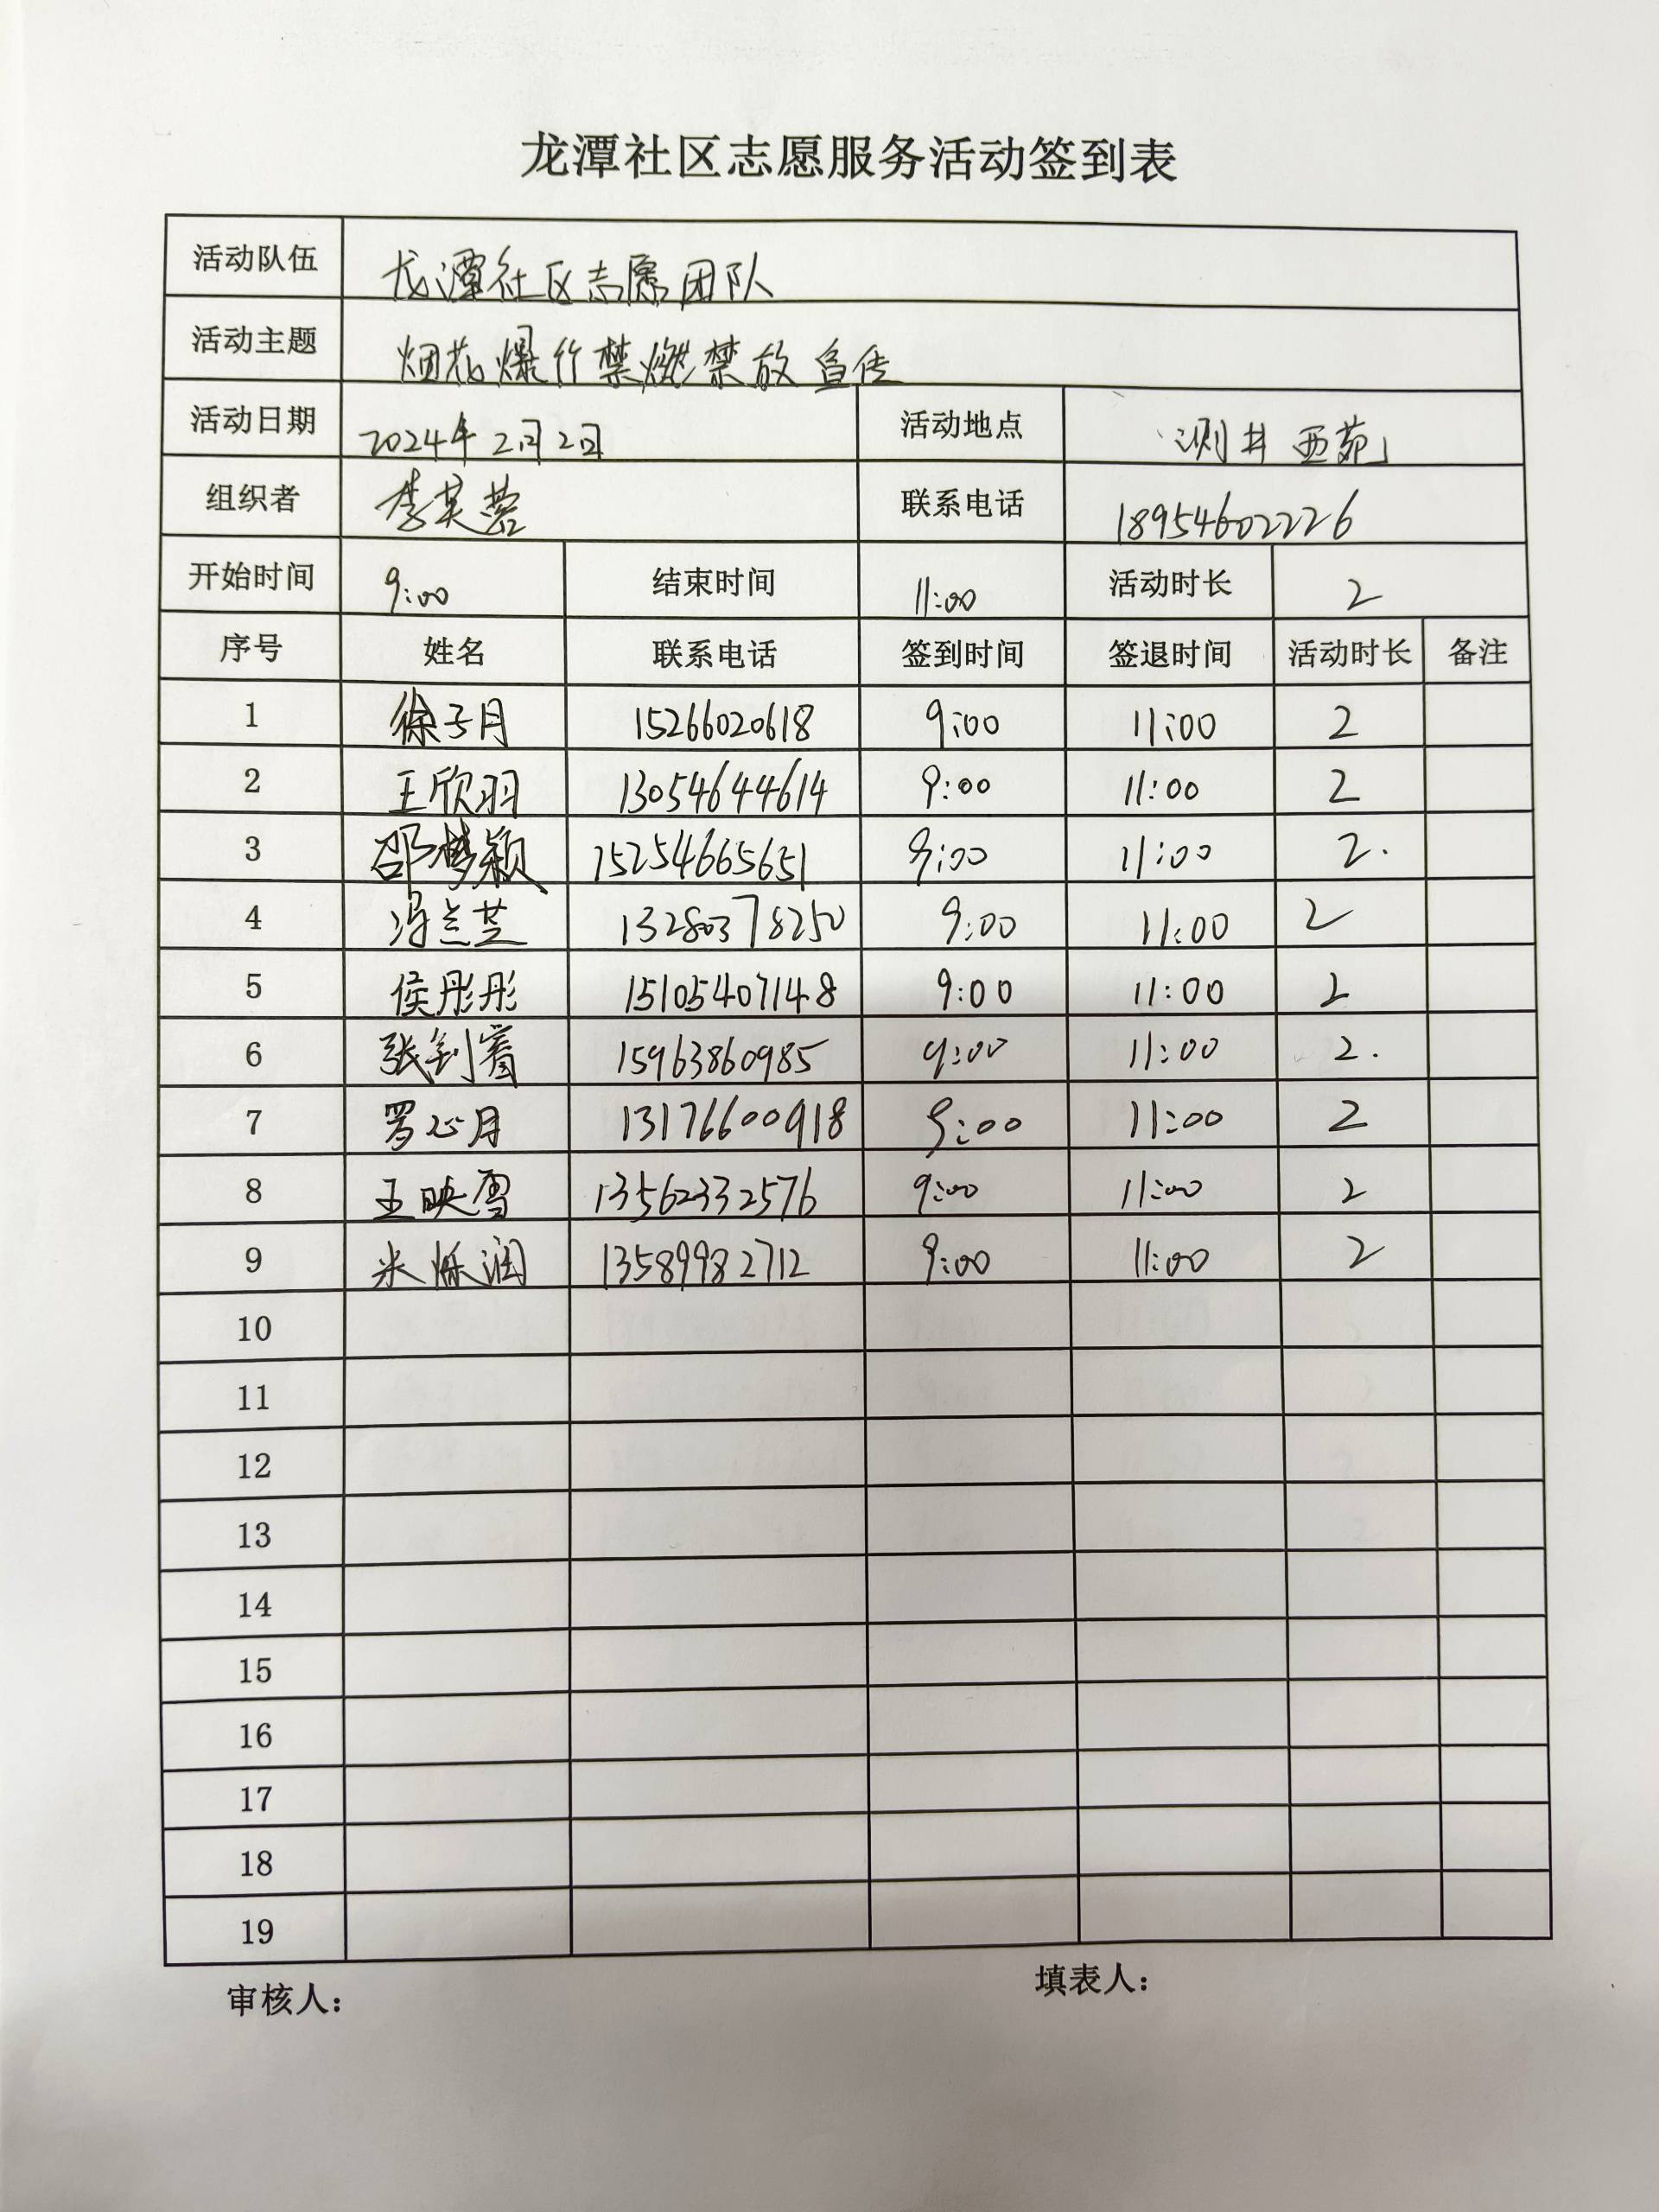 龙潭社区志愿服务活动签到表
活动队伍 龙潭社区志愿团队
活动主题 烟花爆竹禁燃禁放宣传
活动日期 2024年2月2日 活动地点 测井西苑
组织者 李芙蓉 联系电话 18954602226
开始时间 9:00 结束时间 11:00 活动时长 2
序号 姓名 联系电话 签到时间 签退时间 活动时长 备注
1 徐子月 15266020618 9:00 11:00 2
2 王欣羽 13054644614 9:00 11:00 2
3 邵梦颖 15254665651 9:00 11:00 2.
4 冯兰芝 13280378250 9:00 11:00 2
5 侯彤彤 15105407148 9:00 11:00 2
6 15963860985 9:00 11:00 2.
7 罗心月 13176600918 9:00 11:00 2
8 王映雪 13562332576 9:00 11:00 2
9 米烁润 13589982712 9:00 11:00 2
10
11
12
13
14
15
16
17
18
19
审核人: 填表人: